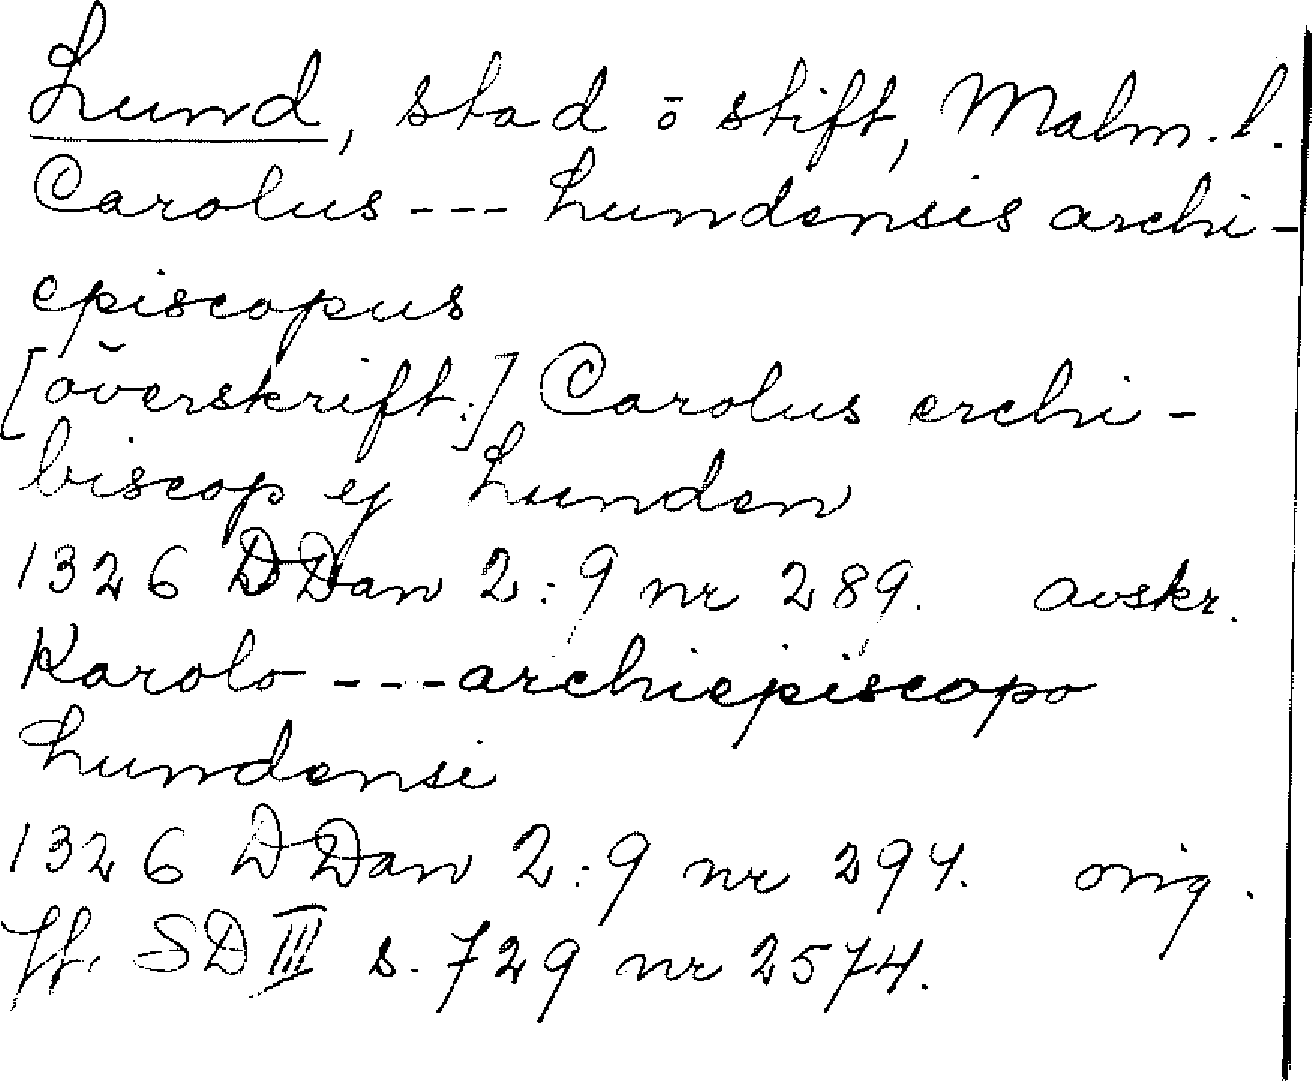 Lund, stad ō stift, Malm. l.
Carolus --- Lundensis archi-
episcopus
[överskrift:] Carolus erchi-
biscop ey Lunden
1326 DDan 2:9 nr 289. avskr.
Karolo --- archiepiscopo
Lundensi
1326 DDan 2:9 nr 294. orig.
Jf. SD III s. 729 nr 2574.